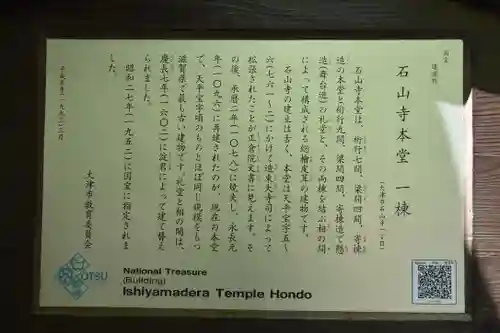 国宝
建造物
石山寺本堂 一棟
(大津市石山寺一丁目)
石山寺本堂は、桁行七間、梁間四間、寄棟
造の本堂と桁行九間、梁間四間、寄棟造で懸
造(舞台造)の礼堂と、その両棟を結ぶ相の間
によって構成される総檜皮葺の建物です。
石山寺の建立は古く、本堂は天平宝字五～
六(七六一～二)にかけて造東大寺司によって
拡張されたことが正倉院文書に見えます。そ
の後、承暦二年(一〇七八)に焼失し、永長元
年(一〇九六)に再建されたのが、現在の本堂
で、天平宝字頃のものとほぼ同じ規模をもつ
滋賀県で最も古い建物です。礼堂と相の間は、
慶長七年(一六〇二)に淀君によって建て替え
られました。
昭和二七年(一九五二)に国宝に指定されま
した。
大津市教育委員会
OTSU
National Treasure
(Building)
Ishiyamadera Temple Hondo